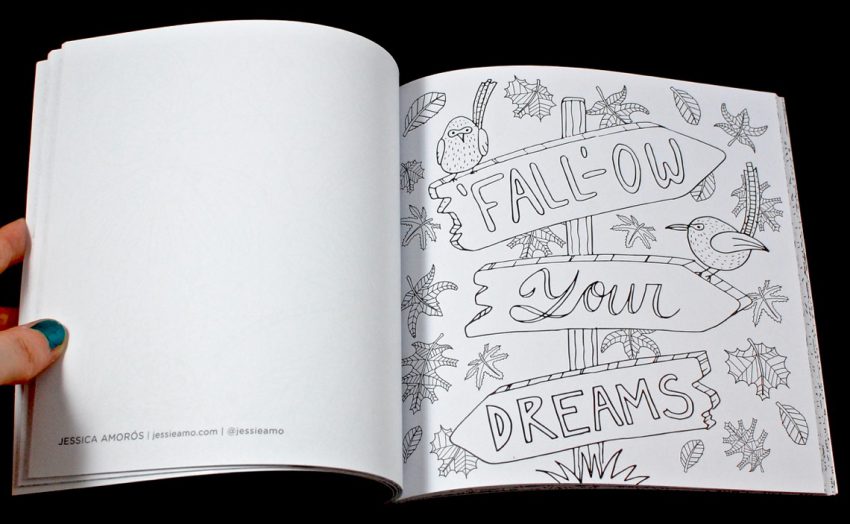 JESSICA AMORÓS | jessieamo.com | @jessieamo
'FALL'-OW
Your
DREAMS